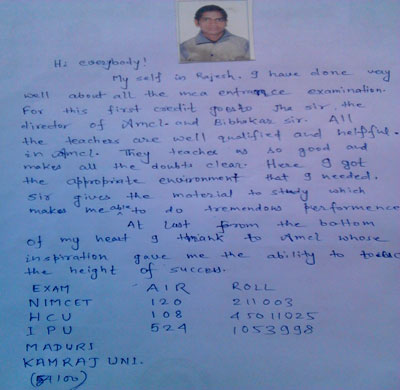 Hi everybody!
My self in Rajesh. I have done very
well about all the mca entrance examination.
For this first credit goesto the sir, the
director of Amcl. and Bibhakar sir. All
the teachers are well qualified and helpful.
in Amcl. They teaches us so good and
makes all the doubts clear. Here I got
the appropriate environment that I needed.
Sir gives the material to study which
makes me able to do tremendous performence
At last from the bottom
of my heart I thank to Amcl whose
inspiration gave me the ability to
the height of success.
EXAM AIR ROLL
NIMCET 120 211003
HCU 108 45011025
IPU 524 1053998
MADURI
KAMRAJ UNI.